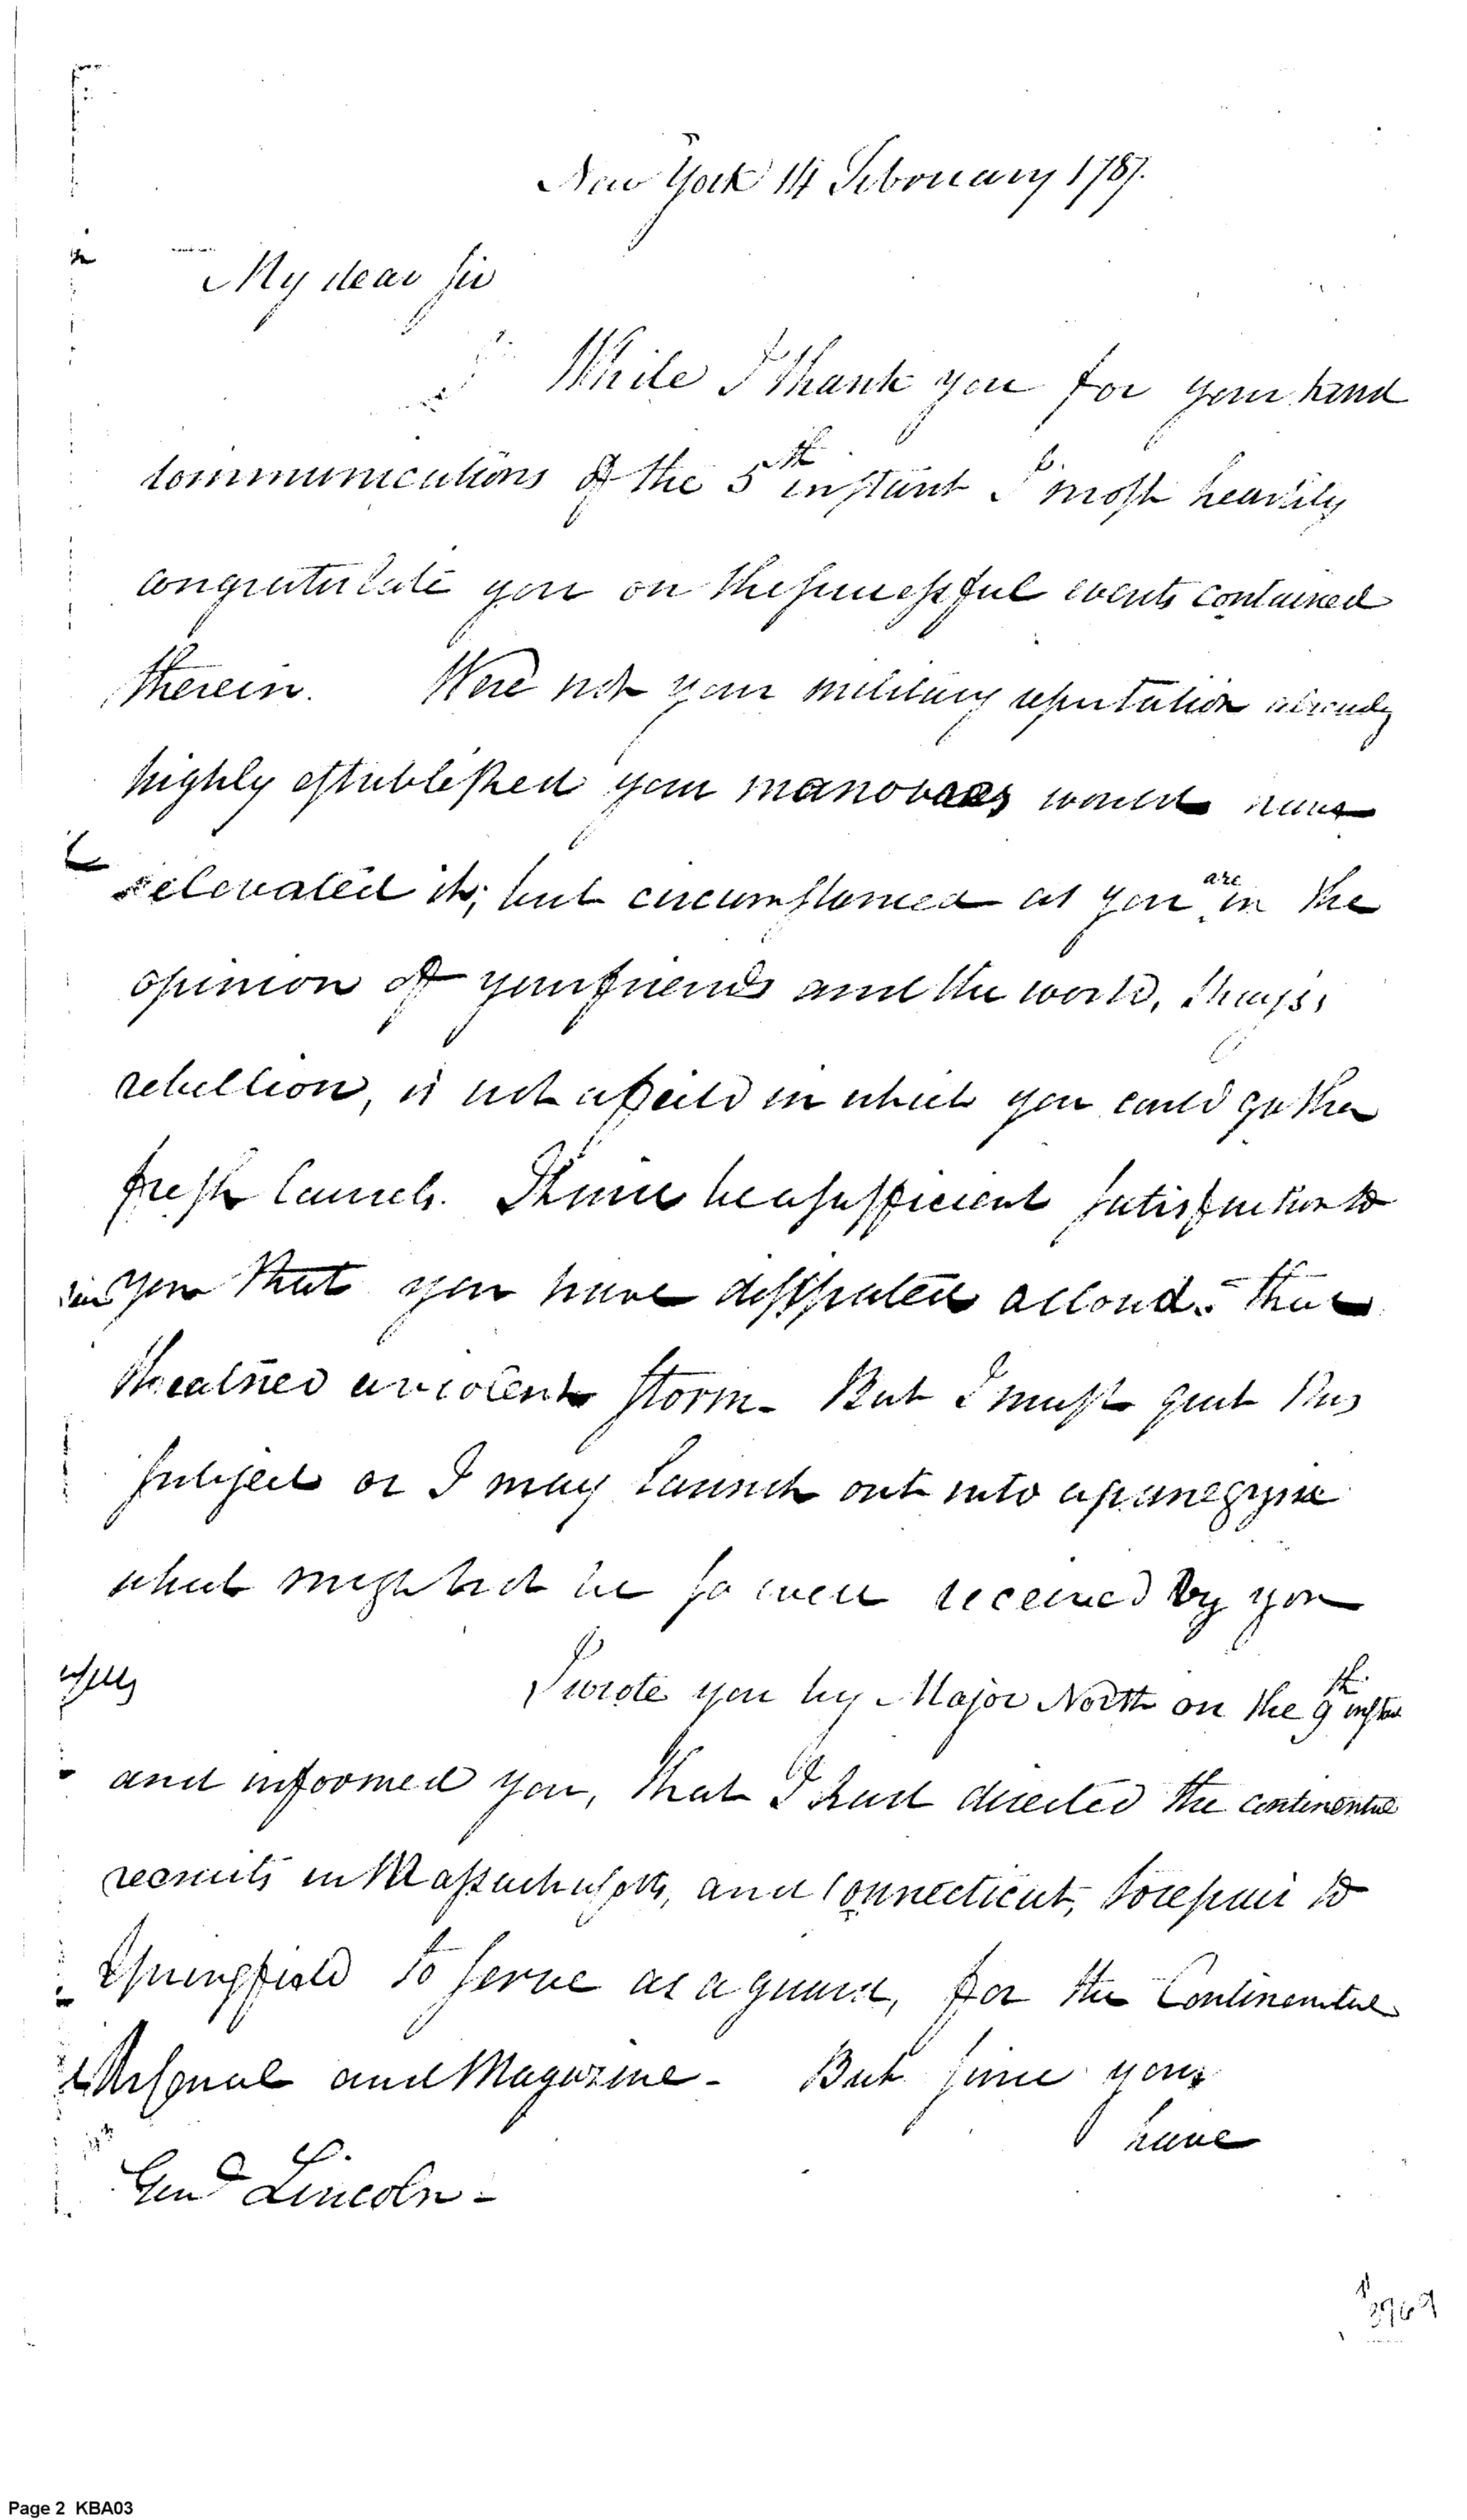 New York 14 February 1787.
My dear sir
While I thank you for your kind
communications of the 5th instant I most heartily
congratulate you on the successful events contained
therein. Were not your military reputation already
highly established your manoves would have
elevated it; but circumstanced as you are in the
opinion of your friends and the world, Shays's
rebellion, is not a feild in which you could gather
fresh laurels. It must be a sufficient satisfaction to
you that you have dissipated a cloud that
threatned a violent storm - But I must quit this
subject or I may launch out into a panegyric
which might not be so well received by you
I wrote you by Major North on the 9th instant
and informed you, that I had directed the continental
recruits in Massachusetts, and Connecticut, to repair to
Springfield to serve as a guard, for the Continental
Arsenal and Magazine - But since you
have
Genl Lincoln -
Page 2 KBA03